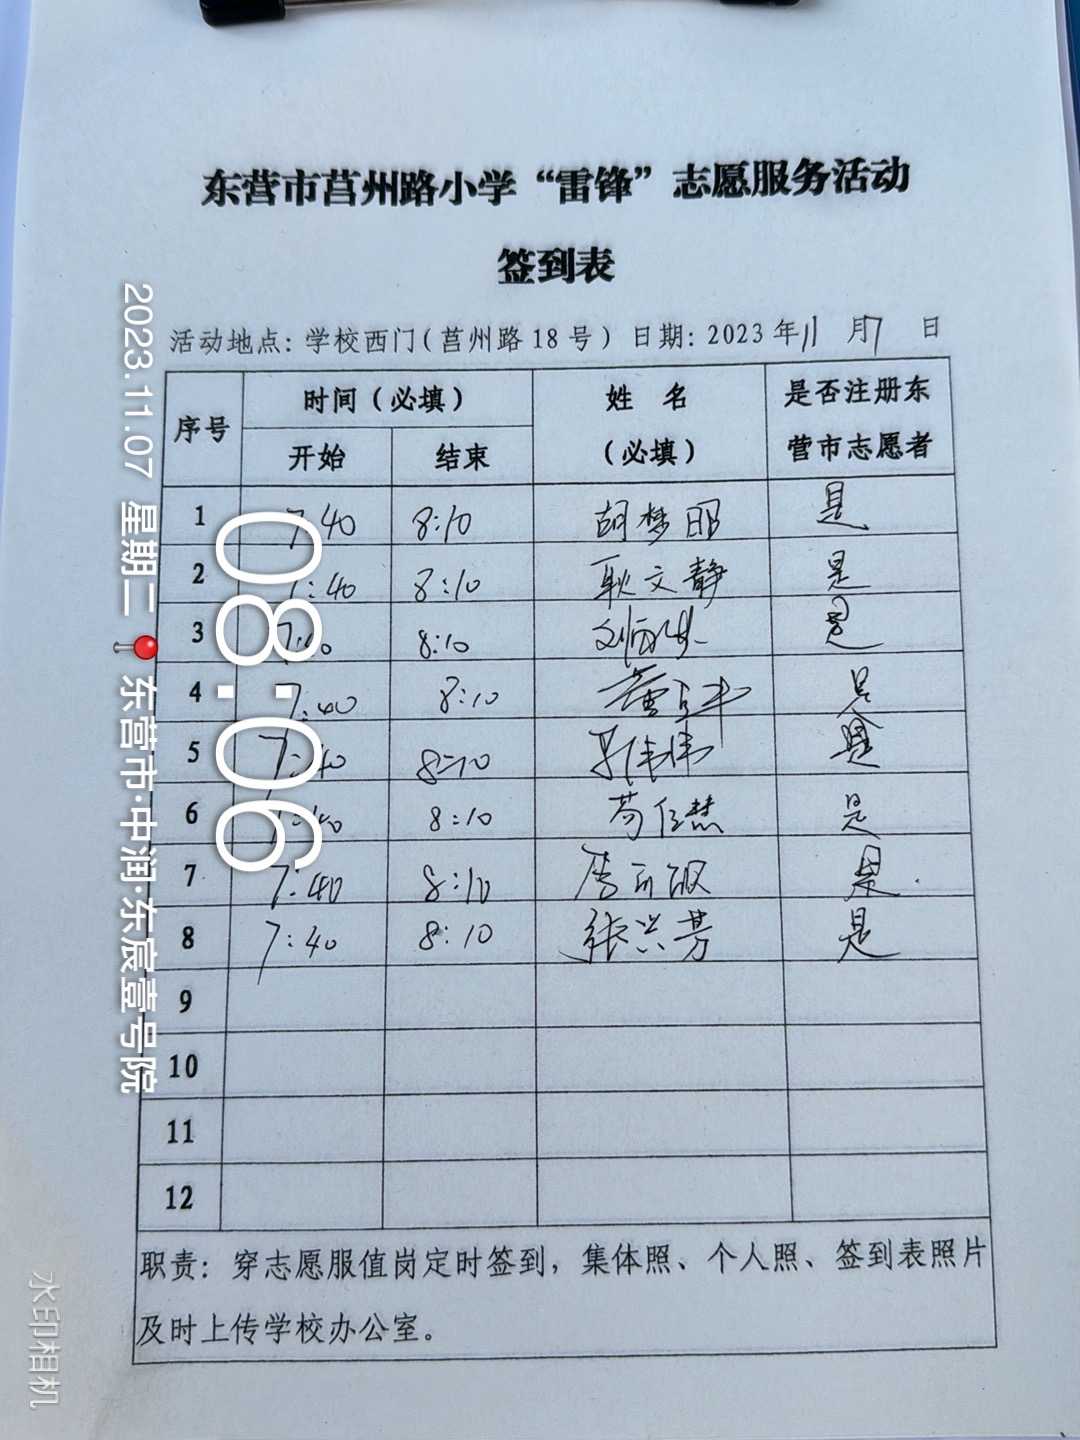 东营市莒州路小学“雷锋”志愿服务活动
签到表
活动地点: 学校西门(莒州路 18 号) 日期: 2023 年 11 月 7 日
序号 时间(必填) 姓 名 (必填) 是否注册东营市志愿者
开始 结束
1 7:40 8:10 胡梦 是
2 7:40 8:10 耿文静 是
3 7:40 8:10 刘 是
4 7:40 8:10 董 是
5 7:40 8:10 伟伟 是
6 7:40 8:10 慧 是
7 7:40 8:10 是
8 7:40 8:10 张兴芳 是
9
10
11
12
职责: 穿志愿服值岗定时签到, 集体照、个人照、签到表照片
及时上传学校办公室。
2023.11.07 星期二 东营市·中润·东宸壹号院
08:06
水印相机